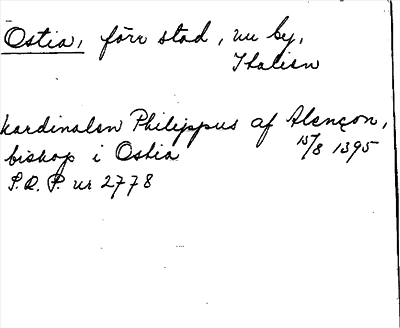 Ostia, förr stad, nu by,
Italien
kardinalen Philippus af Alençon,
biskop i Ostia 15/8 1395
P.R.P. nr 2778